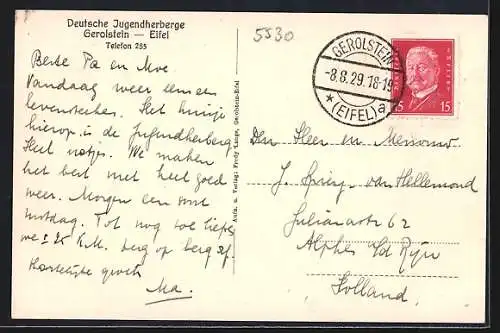 Deutsche Jugendherberge
Gerolstein — Eifel
Telefon 255
5530
GEROLSTEIN
-8.8.29.18-19
★ (EIFEL) a
15 15
Beste Pa en Moe
Vandaag weer eens een
levensteeken. Het huisje
hierop is de Jugendherberg
Heel netjes. We maken
het best met heel goed
weer. Morgen een rust
Tot nog toe liepen
we ± 25 K.M. berg op berg af.
Hartelijke groet
Aufn. u. Verlag: Fredy Lange, Gerolstein-Eifel
Den Heer en Mevrouw
J. van Hellemond
Julianastr 62
Alphen a/d Rijn
Holland.